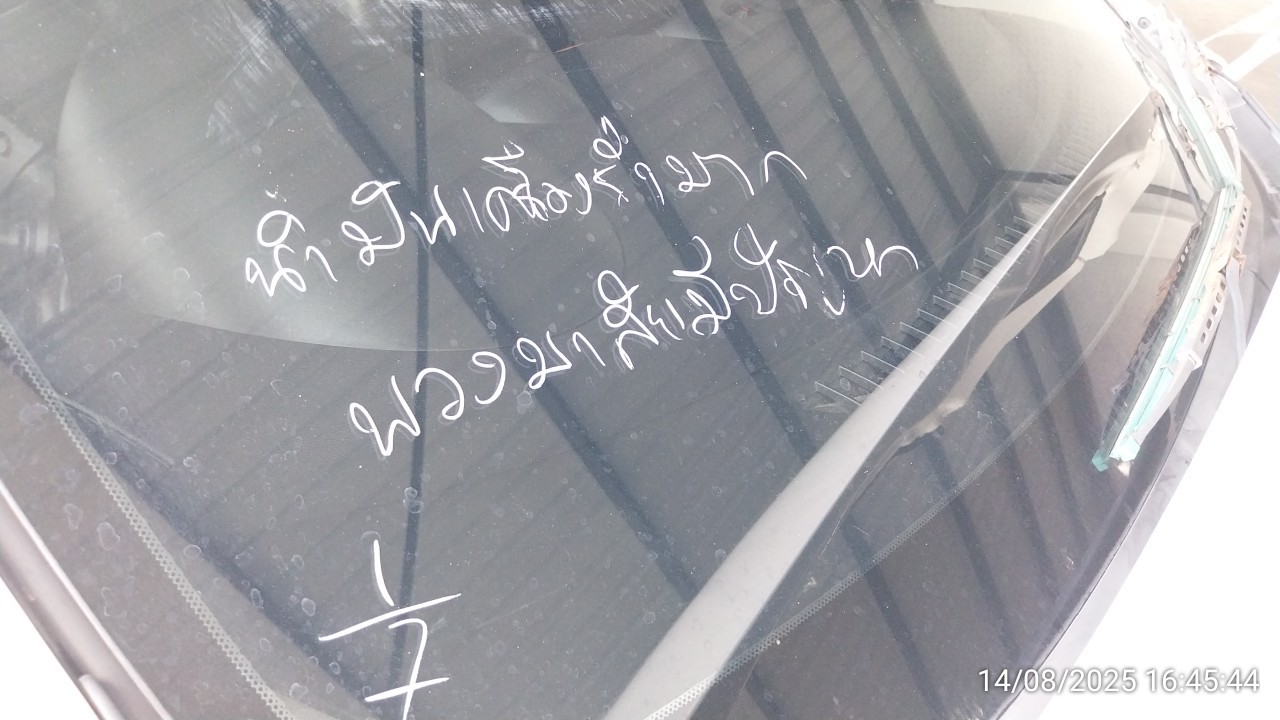 น้ำมันเครื่องรั่วมาก
พวงมาลัยมีปัญหา
1
7
14/08/2025 16:45:44